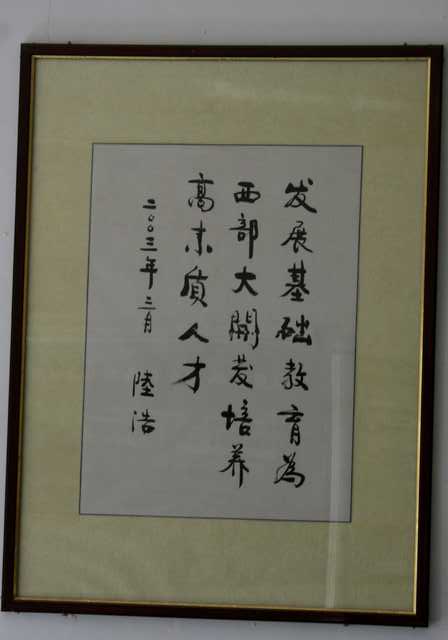 发展基础教育为
西部大開发培养
高素质人才
二〇〇三年二月 陸浩